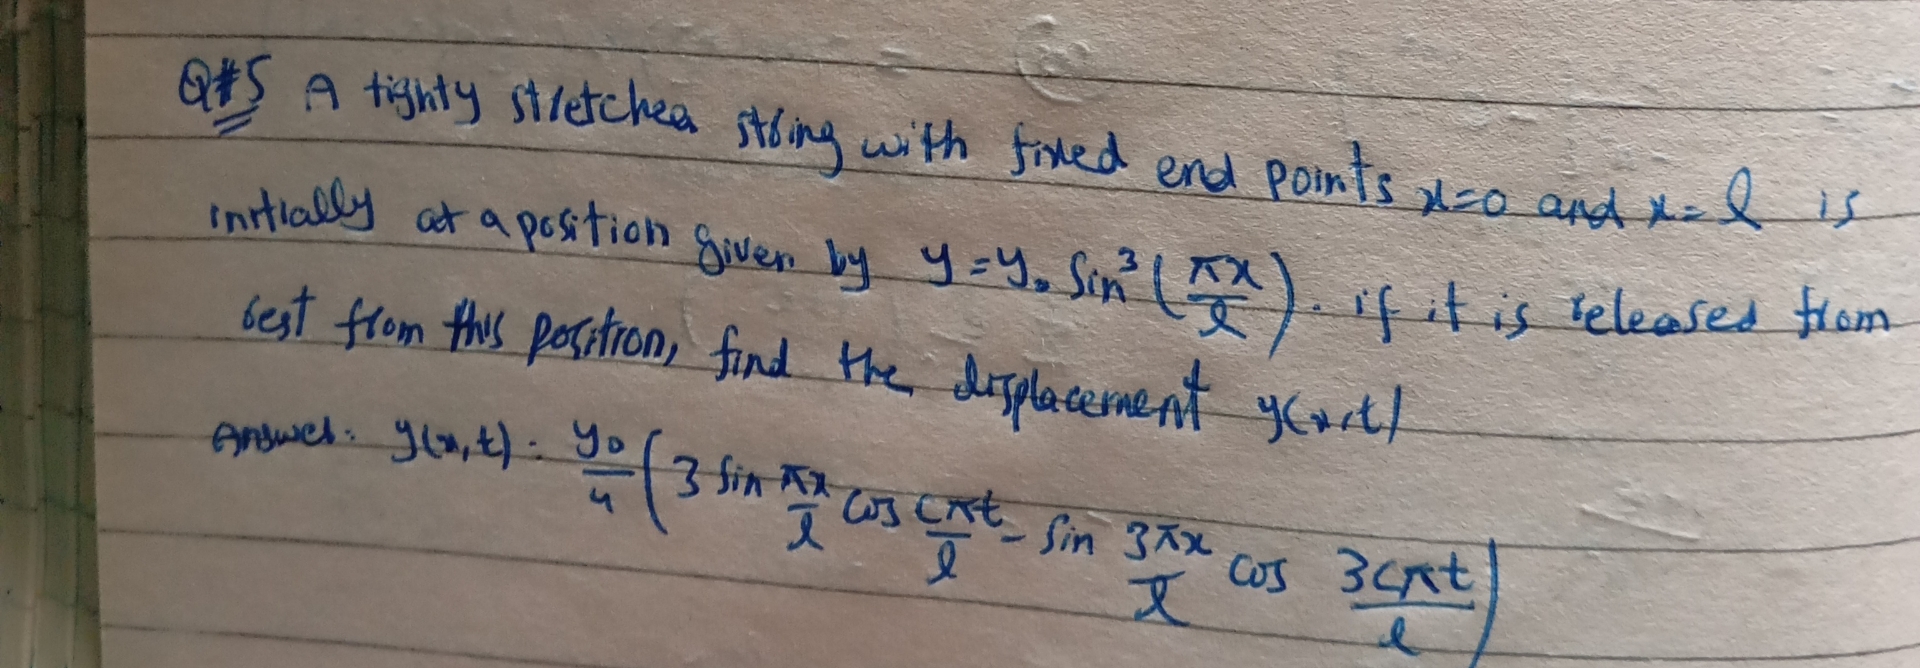 Q#5 A tighty stretched string with fixed end points x=0 and x=l is
initially at a position given by y=y₀ Sin³(πx/l). if it is released from
rest from this position, find the displacement y(x,t)
Answer: y(x,t) = y₀/4 (3 sin πx/l cos cπt/l - sin 3πx/l cos 3cπt/l)